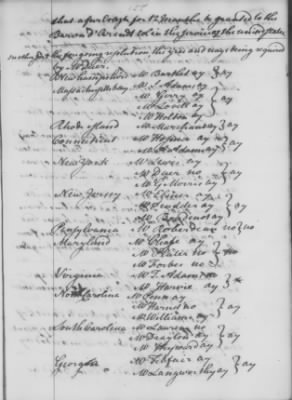 that a furlough for 12 months be granted to the
Baron d'Arendt to be in the service of the united states
on the foregoing resolution the yeas and nays being required
by Mr Duer
New hampshire Mr Bartlett ay } ay
Massachusetts bay Mr S Adams ay
Mr Gerry ay
Mr Lovell ay } ay
Mr Holten ay
Rhode island Mr Marchant ay } ay
Connecticut Mr Hosmer ay
Mr A Adams ay } ay
New York Mr Lewis ay
Mr Duer ay } ay
Mr G Morris ay
New Jersey Mr Elmer ay
Mr Scudder ay } ay
Mr Boudinot ay
Pennsylvania Mr Roberdeau no } no
Maryland Mr Chase ay
Mr Plater no } no
Mr Forbes no
Virginia Mr T Adams no
Mr Harvie ay
North Carolina Mr Penn ay
Mr Harnett no } ay
Mr Williams ay
South Carolina Mr Laurens no
Mr Drayton ay } ay
Mr Heyward ay
Georgia Mr Telfair ay } ay
Mr Langworthy ay